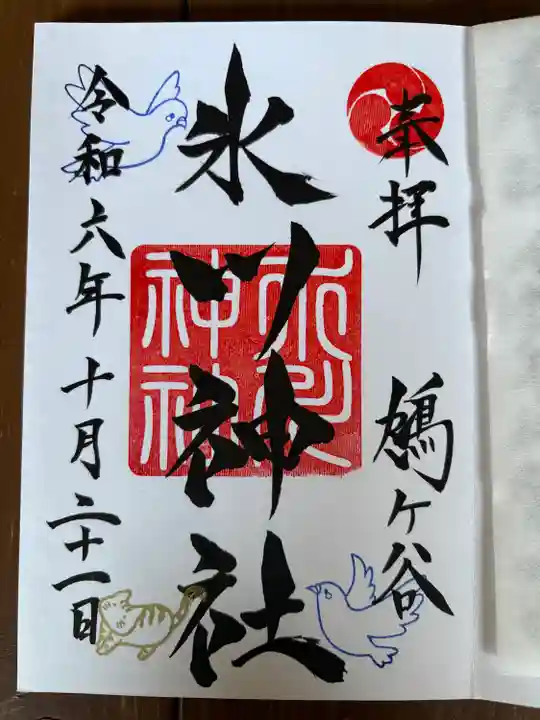 奉拝
鳩ヶ谷
氷川神社
氷川神社
令和六年十月二十一日